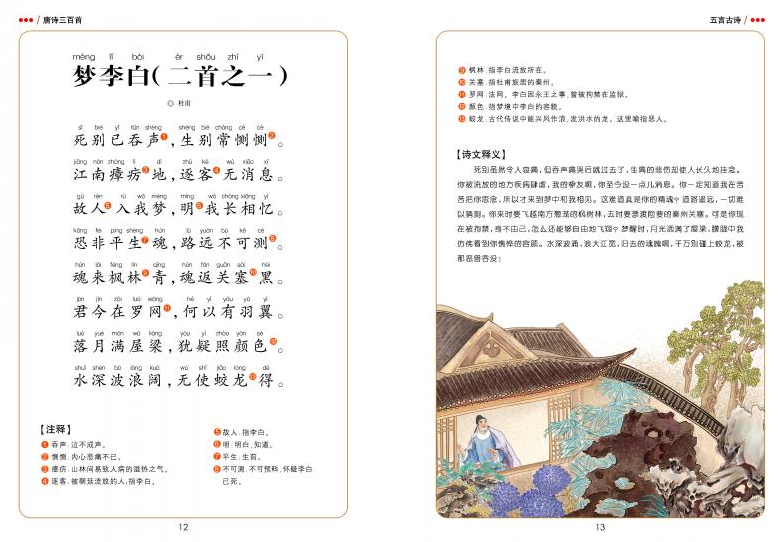 唐诗三百首
mèng lǐ bái èr shǒu zhī yī
梦李白(二首之一)
◎ 杜甫
sǐ bié yǐ tūn shēng shēng bié cháng cè cè
死别已吞声❶,生别常恻恻❷。
jiāng nán zhàng lì dì zhú kè wú xiāo xī
江南瘴疠❸地,逐客❹无消息。
gù rén rù wǒ mèng míng wǒ cháng xiāng yì
故人❺入我梦,明❻我长相忆。
kǒng fēi píng shēng hún lù yuǎn bù kě cè
恐非平生❼魂,路远不可测❽。
hún lái fēng lín qīng hún fǎn guān sài hēi
魂来枫林❾青,魂返关塞❿黑。
jūn jīn zài luó wǎng hé yǐ yǒu yǔ yì
君今在罗网⓫,何以有羽翼。
luò yuè mǎn wū liáng yóu yí zhào yán sè
落月满屋梁,犹疑照颜色⓬。
shuǐ shēn bō làng kuò wú shǐ jiāo lóng dé
水深波浪阔,无使蛟龙⓭得。
【注释】
❶ 吞声:泣不成声。
❷ 恻恻:内心悲痛不已。
❸ 瘴疠:山林间易致人病的湿热之气。
❹ 逐客:被朝廷流放的人,指李白。
❺ 故人:指李白。
❻ 明:明白,知道。
❼ 平生:生前。
❽ 不可测:不可预料,怀疑李白
已死。
12
五言古诗
❾ 枫林:指李白流放所在。
❿ 关塞:指杜甫旅居的秦州。
⓫ 罗网:法网。李白因永王之事,曾被拘禁在监狱。
⓬ 颜色:指梦境中李白的容貌。
⓭ 蛟龙:古代传说中能兴风作浪、发洪水的龙。这里喻指恶人。
【诗文释义】
死别虽然令人哀痛,但吞声痛哭后就过去了,生离的悲伤却使人长久地挂念。
你被流放的地方疾病肆虐,我的挚友啊,你至今没一点儿消息。你一定知道我在苦
苦把你思念,所以才来到梦中和我相见。这难道真是你的精魂?道路遥远,一切难
以猜测。你来时要飞越南方葱茏的枫树林,去时要漂渡险要的秦州关塞。可是你现
在被拘禁,身不由己,怎么还能够自由地飞翔?梦醒时,月光洒满了屋梁,朦胧中我
仿佛看到你憔悴的容颜。水深波涌,浪大江宽,归去的魂魄啊,千万别碰上蛟龙,被
那恶兽吞没!
13